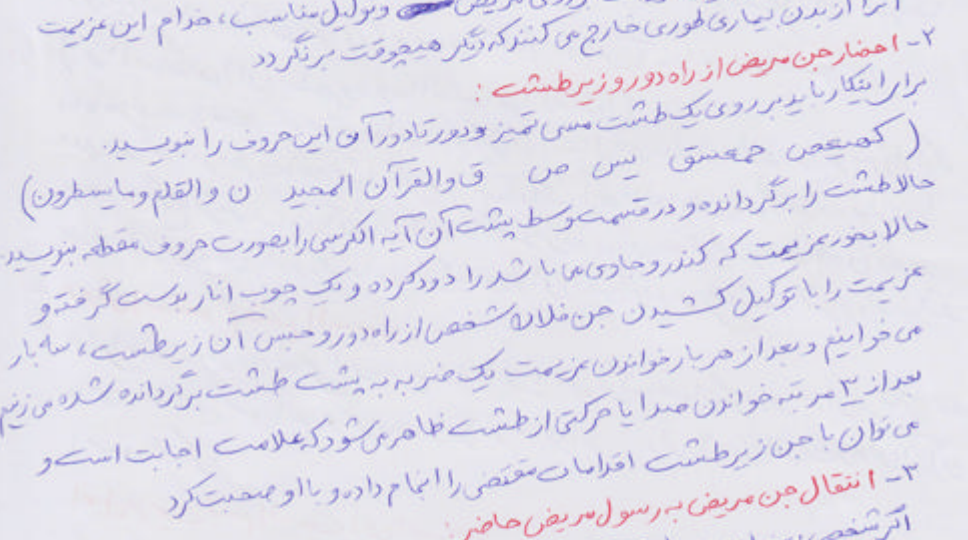 وتوکیل مناسب، خدام این عزیمت
آنرا از بدن بیماری طوری خارج می کنند که دیگر هیچوقت برنگردد
۲- احضار جن مریض از راه دور و زیر طشت :
برای اینکار باید بر روی یک طشت مسی تمیز و دور تا دور آن این حروف را بنویسید.
( کهیعص حمعسق یس ص ق والقرآن المجید ن والقلم ومایسطرون)
حالا طشت را برگردانده و در قسمت وسط پشت آن آیه الکرسی را بصورت حروف مقطعه بنویسید.
حالا بخور عزیمت که کندر و حاوی می باشد را دود کرده و یک چوب انار بدست گرفته و
عزیمت را با توکیل کشیدن جن فلان شخص از راه دور و حبس آن زیر طشت، سه بار
می خوانیم و بعد از هر بار خواندن عزیمت یک ضربه به پشت طشت برگردانده شده می زنیم
بعد از ۳ مرتبه خواندن صدا یا حرکتی از طشت ظاهر می شود که علامت اجابت است و
می توان با جن زیر طشت اقدامات مقتضی را انجام داده و با او صحبت کرد
۳- انتقال جن مریض به رسول مریض حاضر :
اگر شخص